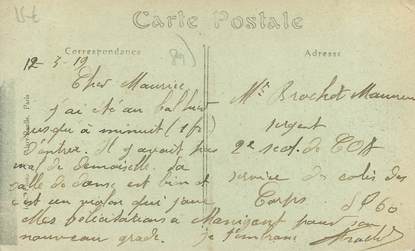 15€
Carte Postale
Correspondance
Adresse
12-3-19
Cher Maurice
j'ai été au bal hier
jusqu'à minuit (1 f)
d'entrée. Il y avait pas
mal de demoiselle. La
salle de danse est bien et
c'est un violon qui joue
Mes félicitations à pour son
nouveau grade. je t'embrasse
Mr Brochet Maurice
sergent
2e sect. de COA
service des colis des
Corps S P 60
Paris